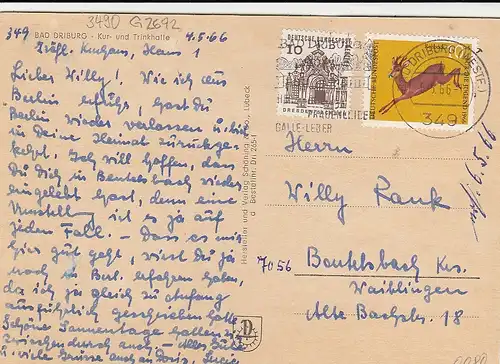 3490 G2692
349 BAD DRIBURG - Kur- und Trinkhalle
4.5.66
Gräfl. Kurhaus, Haus 1
Lieber Willy! Wie ich aus
Berlin erfuhr, hast Du
Berlin wieder verlassen u. bist
in Deine Heimat zurückge-
kehrt. Ich will hoffen, dass
Du Dich in Beutelsbach wieder
eingelebt hast, denn eine
Umstellg. ist es ja auf
jeden Fall. - Dass es mir
hier gut geht, wirst Du ja
noch in Berl. erfahren haben,
da ich ja gleich zu Anfang
ausführlich geschrieben hatte
Schöne Sonnentage hatten wir
zwischendurch auch - Alles Gute
u. viele Grüsse auch an Doris,
Hersteller und Verlag Schöning & Co., Lübeck
Bestellnr. Dr 265-1
DEUTSCHE BUNDESPOST
10
DRESDEN
DEUTSCHE BUNDESPOST
BAD DRIBURG (WESTF.)
349
GALLE-LEBER
Herrn
Willy Rank
7056 Beutelsbach Krs.
Waiblingen
Alte Bachstr. 18